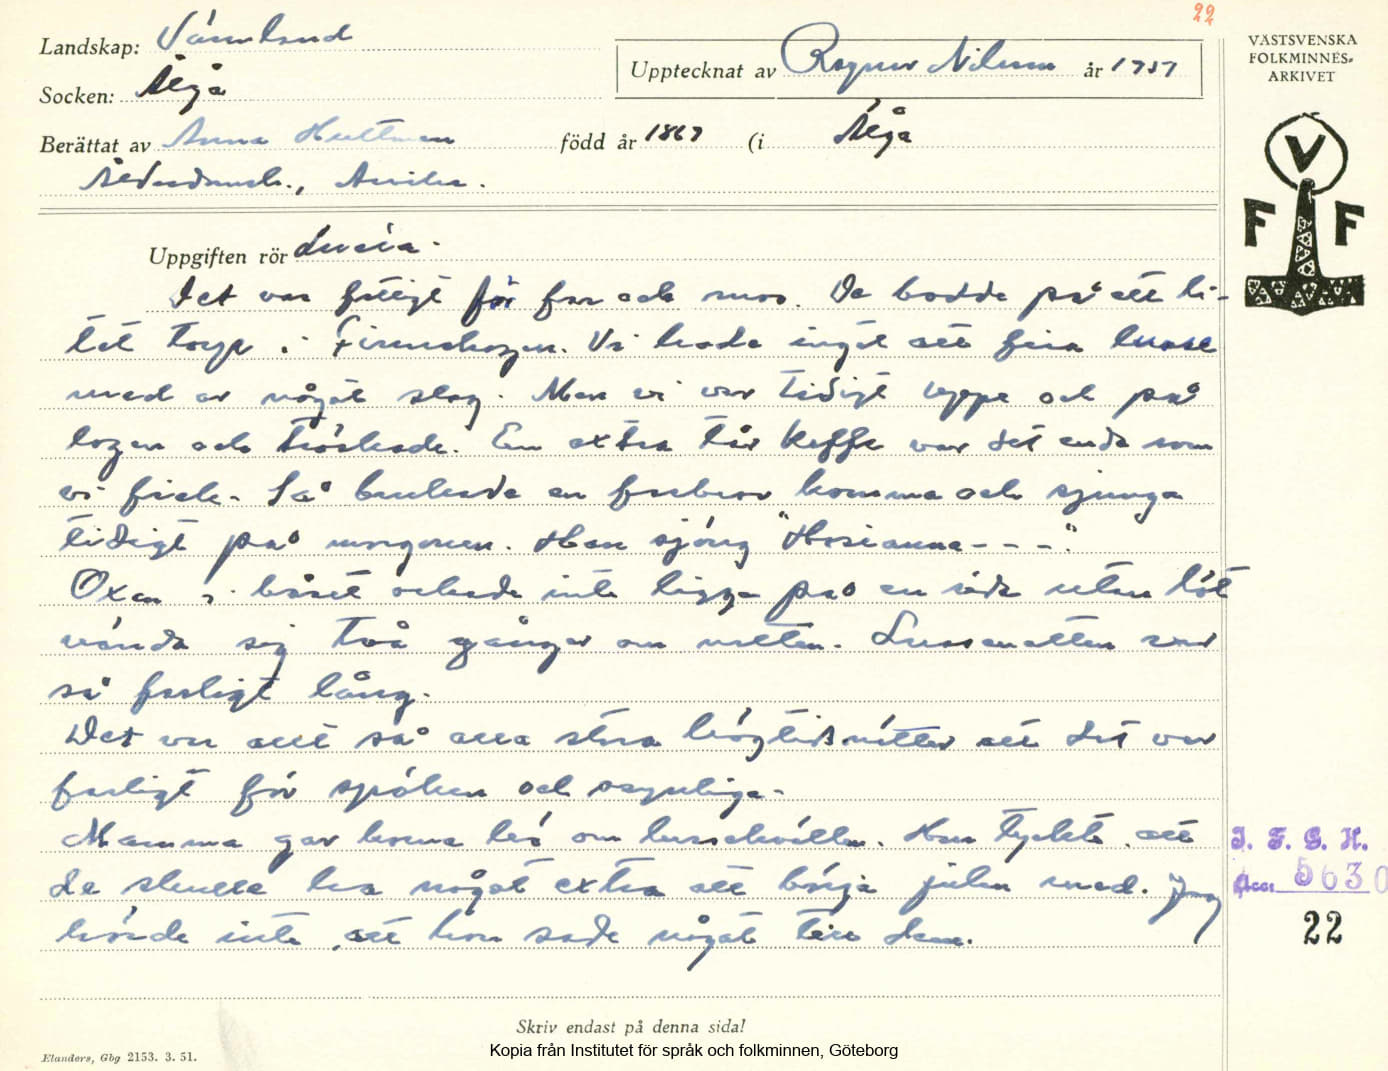 22
Landskap: Värmland
Upptecknat av Ragnar Nilsson år 1957
Socken: Älgå
Berättat av Anna Huttman född år 1867 (i Älgå
Ålderdomsh., Arvika.
Uppgiften rör Lucia.
Det var fattigt för far och mor. De bodde på ett li-
tet torp i Finnskogen. Vi hade inget att fira lusse
med av något slag. Men vi var tidigt uppe och på
logen och tröskade. En extra tår kaffe var det enda som
vi fick. Så brukade en farbror komma och sjunga
tidigt på morgonen. Han sjöng "Hosianna - - -".
Oxen i båset orkade inte ligga på en sida utan löt
vända sig två gånger om natten. Lussenatten var
så farligt lång.
Det var allt så alla stora högtidsnätter att det var
farligt för spöken och osynliga.
Mamma gav korna hö om lussekvällen. Hon tyckte att
de skulle ha något extra att börja julen med. Jag
hörde inte att hon sade något till dem.
VÄSTSVENSKA
FOLKMINNES-
ARKIVET
V
F F
I. F. G. H.
Acc. 5630
22
Skriv endast på denna sida!
Elanders, Gbg 2153. 3. 51.
Kopia från Institutet för språk och folkminnen, Göteborg